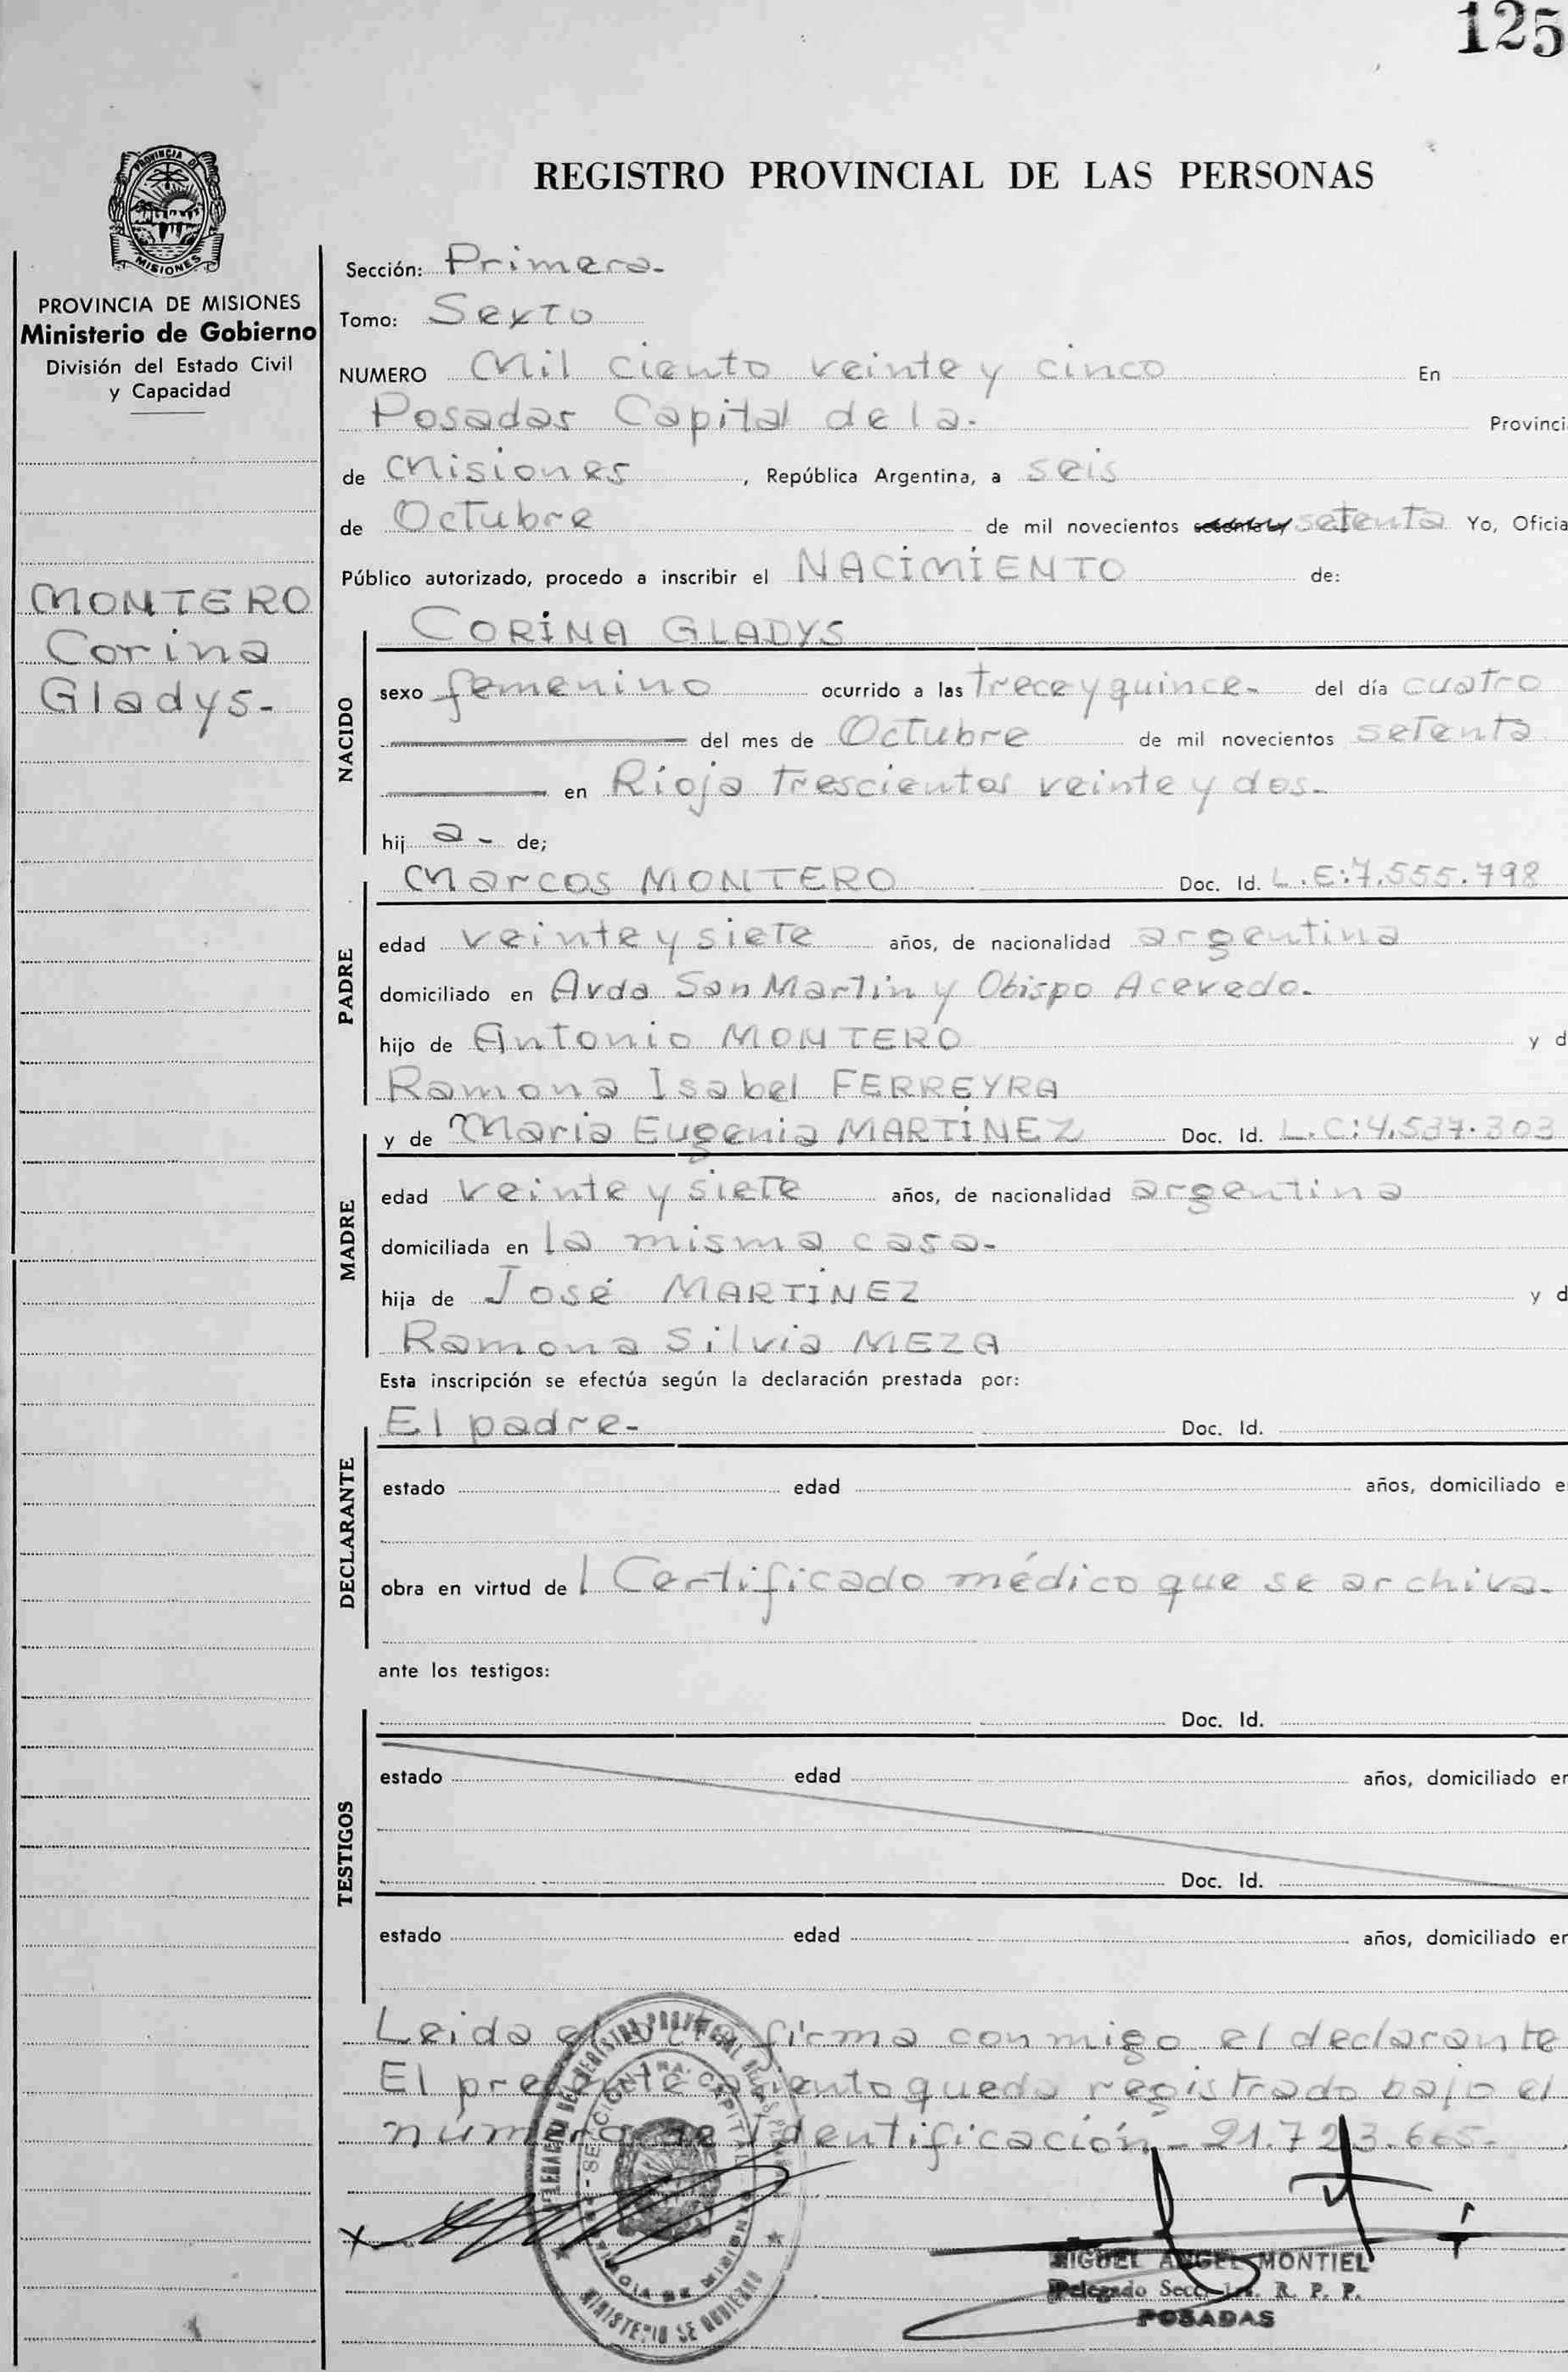 125
REGISTRO PROVINCIAL DE LAS PERSONAS
PROVINCIA DE
MISIONES
PROVINCIA DE MISIONES
Ministerio de Gobierno
División del Estado Civil
y Capacidad
MONTERO
Corina
Gladys.-
Sección: Primera.-
Tomo: Sexto
NUMERO Mil ciento veinte y cinco En
Posadas Capital de la.- Provinci
de Misiones , República Argentina, a seis
de Octubre de mil novecientos setenta Yo, Oficia
Público autorizado, procedo a inscribir el NACIMIENTO de:
NACIDO
CORINA GLADYS
sexo femenino ocurrido a las trece y quince.- del día cuatro
del mes de Octubre de mil novecientos setenta
en Rioja trescientos veinte y dos.-
hij a- de;
PADRE
Marcos MONTERO Doc. Id. L.E:7.555.798
edad veinte y siete años, de nacionalidad argentina
domiciliado en Avda San Martin y Obispo Acevedo.-
hijo de Antonio MONTERO y d
Ramona Isabel FERREYRA
MADRE
y de Maria Eugenia MARTINEZ Doc. Id. L.C:4.537.303
edad veinte y siete años, de nacionalidad argentina
domiciliada en la misma casa.-
hija de José MARTINEZ y d
Ramona Silvia MEZA
Esta inscripción se efectúa según la declaración prestada por:
DECLARANTE
El padre.- Doc. Id.
estado edad años, domiciliado e
obra en virtud de l Certificado médico que se archiva.-
ante los testigos:
TESTIGOS
Doc. Id.
estado edad años, domiciliado en
Doc. Id.
estado edad años, domiciliado en
Leida el acta firma conmigo el declarante
El presente asiento queda registrado bajo el
número de Identificación.- 21.723.665.-
DELEGACION DEL REGISTRO PROVINCIAL DE LAS PERSONAS
SECCION 1RA. CAPITAL
PROVINCIA DE MISIONES
MINISTERIO DE GOBIERNO
MIGUEL ANGEL MONTIEL
Delegado Secc. 1ra. R. P. P.
POSADAS